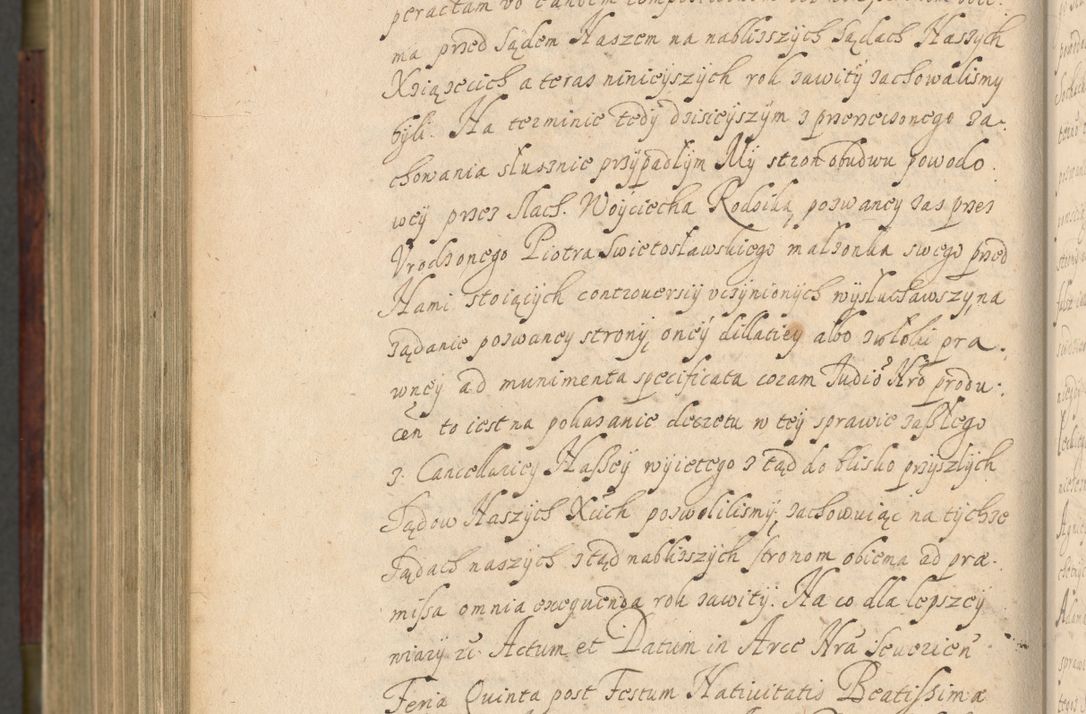 ma przed Sądem Naszem na nabliższych Sądach Naszych
Xsiążęcich a teraz ninieyszych rok zawity zachowalismy
byli. Na terminie tedy dzisieyszym z przerzeczonego za-
chowania słusznie przypadłym My stron obudwu powodo-
wey przez Slach. Woyciecha Rodzika, pozwaney zas przez
Vrodzonego Piotra Swietosławskiego małżonka swego przed
Nami stoiących controuersiy vczynionych wysłuchawszy, na
żądanie pozwaney strony, oney dillatiey albo zwłoki pra-
wney ad munimenta specificata coram Judiō Nrō produ-
cen̄ to iest na pokazanie decretu w tey sprawie zaszłego
z Cancellariey Naszey wyietego z tąd do blisko przyszłych
Sądow Naszych Xcich pozwolilismy, zachowuiąc na tychze
Sądach naszych z tąd nabliższych stronom obiema ad præ-
missa omnia exequenda rok zawity. Na co dla lepszey
wiary rc. Actum et Datum in Arce Nrā Seuerien̄
Feria Quinta post Festum Natiuitatis Beatissimæ